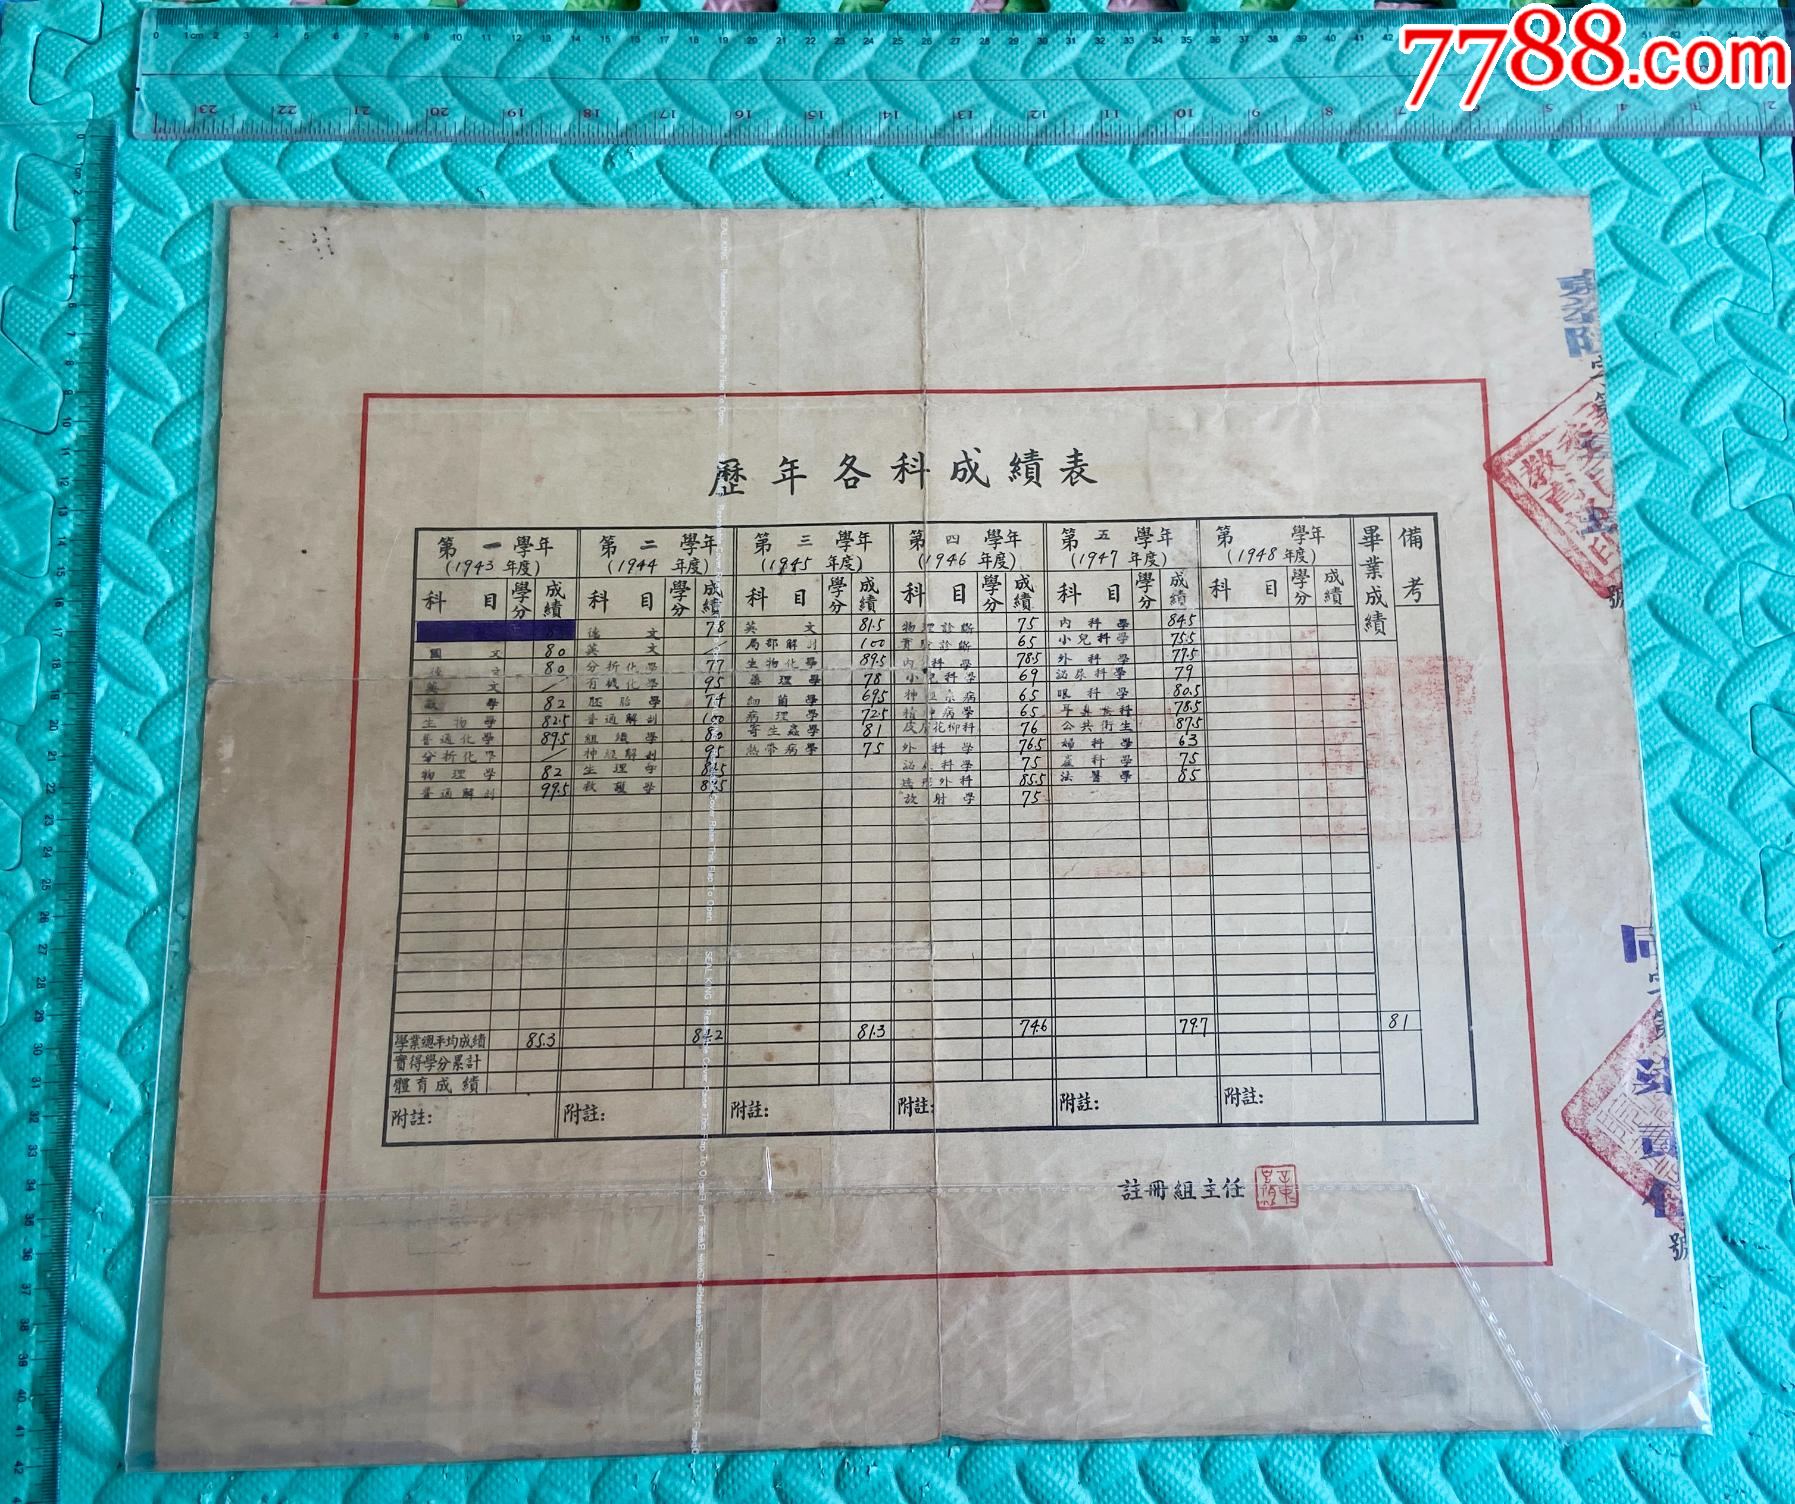 7788.com
歷年各科成績表
第一學年 第二學年 第三學年 第四學年 第五學年 第 學年 畢業成績 備考
(1943年度) (1944年度) (1945年度) (1946年度) (1947年度) (1948年度)
科目 學分 成績 科目 學分 成績 科目 學分 成績 科目 學分 成績 科目 學分 成績 科目 學分 成績
德文 78 英文 81.5 物理診斷 75 內科學 84.5
國文 80 英文 / 局部解剖 100 實驗診斷 65 小兒科學 75.5
德文 80 分析化學 77 生物化學 89.5 內科學 78.5 外科學 77.5
英文 / 有機化學 95 藥理學 78 小兒科學 69 泌尿科學 79
數學 82 胚胎學 74 細菌學 69.5 神經系病 65 眼科學 80.5
生物學 82.5 普通解剖 100 病理學 72.5 精神病學 65 耳鼻喉科 78.5
普通化學 89.5 組織學 80 寄生蟲學 81 皮膚花柳科 76 公共衛生 87.5
分析化學 / 神經解剖 95 熱帶病學 75 外科學 76.5 婦科學 63
物理學 82 生理學 泌尿科學 75 產科學 75
普通解剖 99.5 救護學 85.5 法醫學 85
放射學 75
學業總平均成績 85.3 84.2 81.3 74.6 79.7 81
實得學分累計
體育成績
附註: 附註: 附註: 附註: 附註: 附註:
註冊組主任
號
號